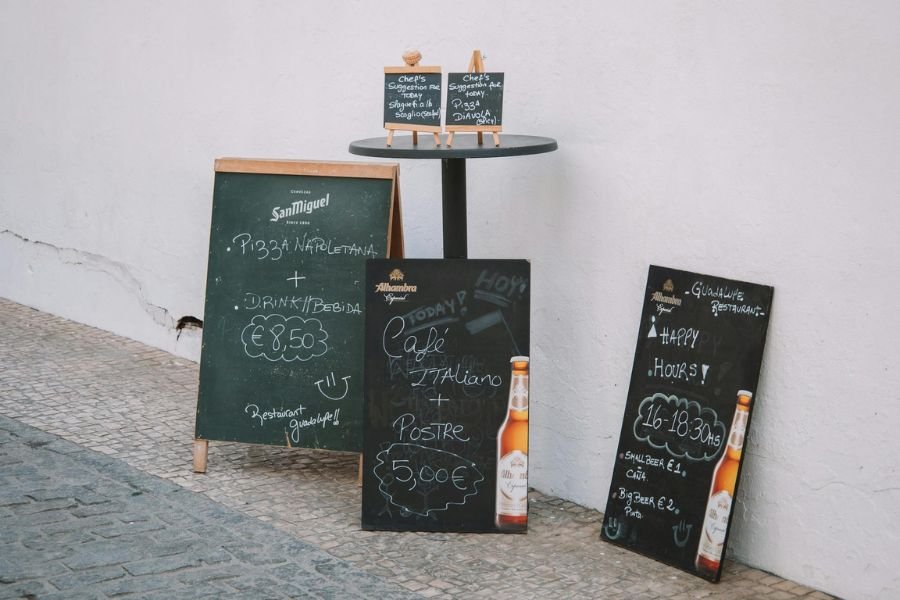 Chef's
Suggestion For
TODAY
Spaguetti allo
Scoglio (Seafood)
Chef's
Suggestion for
TODAY.
Pizza
DiAVOLA
(Spicy)
CERVEZAS
SanMiguel
SINCE 1890
.Pizza NAPOLETANA
+
.DRINK//BEBIDA
€8,50
Restaurant
Guadalupe!!
Alhambra
Especial
HOY!
TODAY!
Café
ITALiano
+
POSTRE
5,00€
Alhambra
Especial
-GUADALUPE
RESTAURANT-
HAPPY
HOURS!
16-18:30HS
.SMALL BEER €1.
CAÑA.
.Big BEER €2.
Pinta.